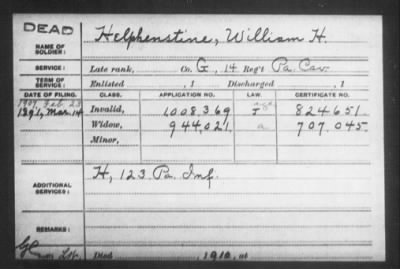 DEAD
NAME OF SOLDIER: Helphenstine, William H.
SERVICE: Late rank, Co. G, 14 Reg't Pa. Cav.
TERM OF SERVICE: Enlisted , 1 Discharged , 1
DATE OF FILING. CLASS. APPLICATION NO. LAW. CERTIFICATE NO.
1907, Feb. 23 Invalid, 1,008,369 824651.
1891, Mar. 14 Widow, 944,021. a 707,045.
Minor,
ADDITIONAL SERVICES: H, 123 Pa. Inf.
REMARKS:
Died , 1910, at